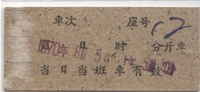 车次 座号 12
月 日 时 分开车
1970年 8月 5
当日当班车有效